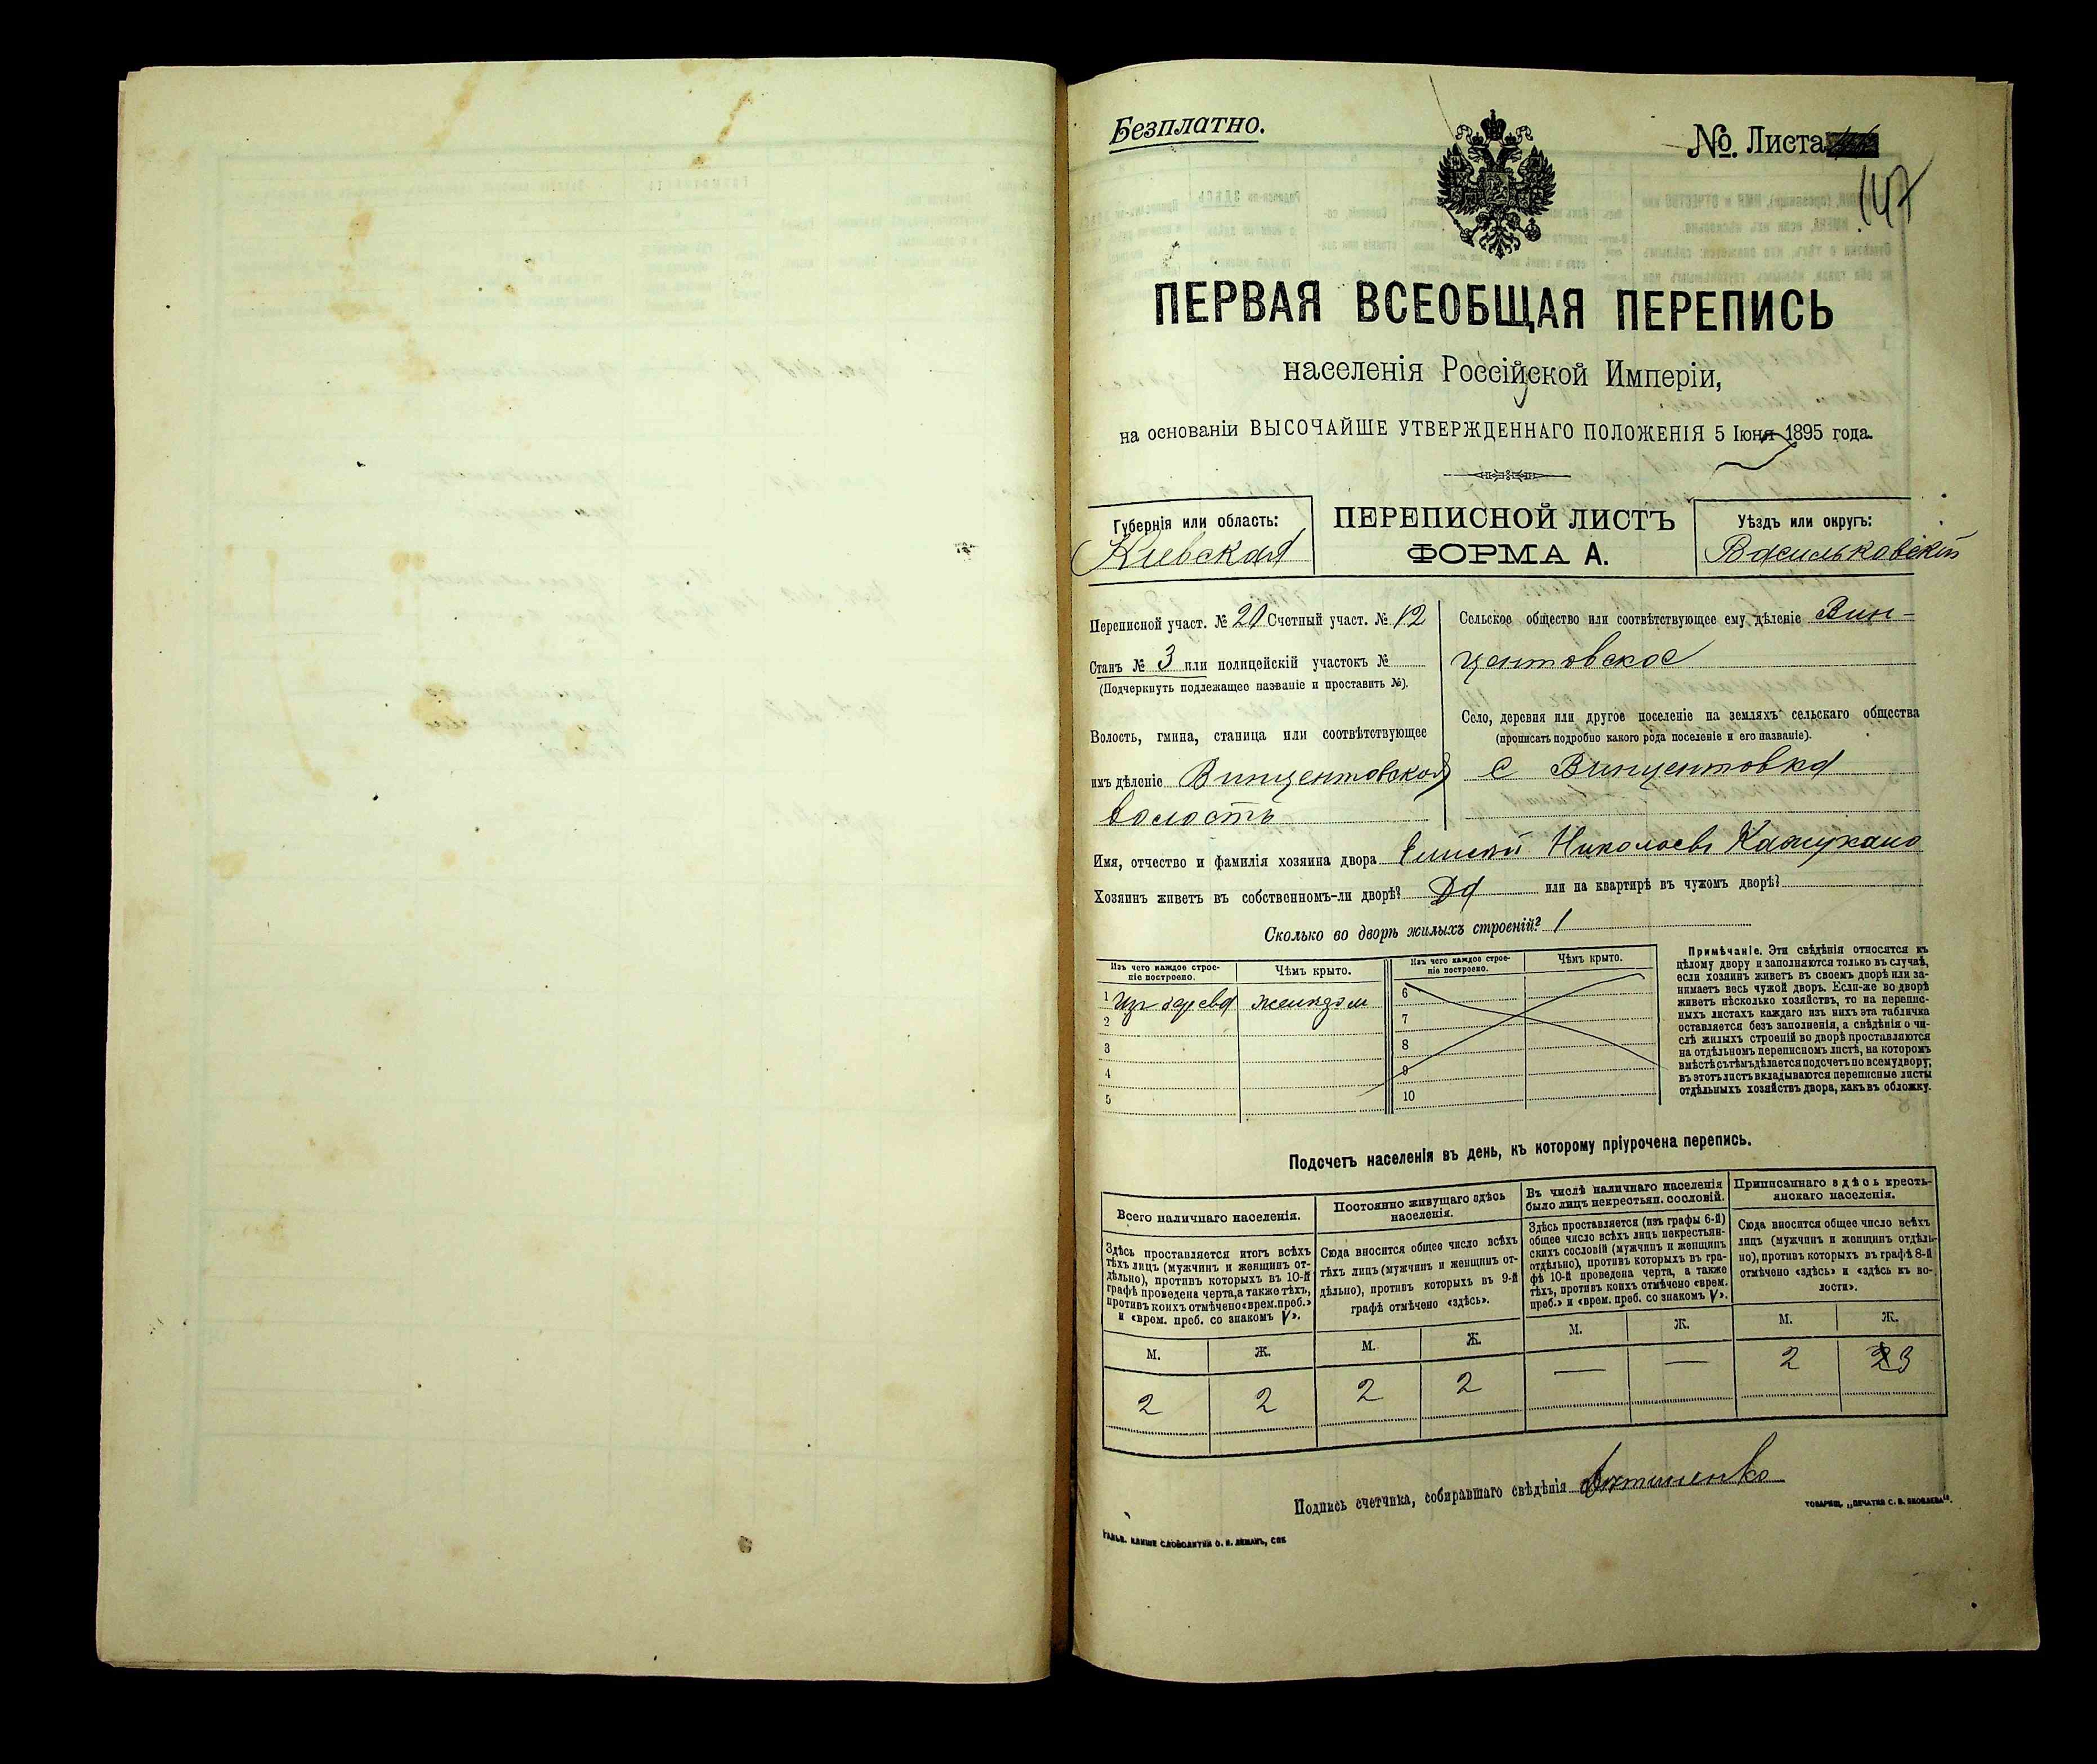 Безплатно.
№. Листа
147
ПЕРВАЯ ВСЕОБЩАЯ ПЕРЕПИСЬ
населенія Россійской Имперіи,
на основаніи ВЫСОЧАЙШЕ УТВЕРЖДЕННАГО ПОЛОЖЕНІЯ 5 Іюня 1895 года.
Губернія или область:
Кіевская
ПЕРЕПИСНОЙ ЛИСТЪ
ФОРМА А.
Уѣздъ или округъ:
Васильковскій
Переписной участ. № 20 Счетный участ. № 12
Станъ № 3 или полицейскій участокъ №
(Подчеркнуть подлежащее названіе и проставить №).
Волость, гмина, станица или соотвѣтствующее
имъ дѣленіе Винцентовская
волость
Сельское общество или соотвѣтствующее ему дѣленіе Вин-
центовское
Село, деревня или другое поселеніе на земляхъ сельскаго общества
(прописать подробно какого рода поселеніе и его названіе).
С Винцентовка
Имя, отчество и фамилія хозяина двора Николаевъ
Хозяинъ живетъ въ собственномъ-ли дворѣ? Да или на квартирѣ въ чужомъ дворѣ?
Сколько во дворѣ жилыхъ строеній? 1
Изъ чего каждое строе-
ніе построено.
Чѣмъ крыто.
Изъ чего каждое строе-
ніе построено.
Чѣмъ крыто.
1 Изъ дерева
2
3
4
5
6
7
8
9
10
Примѣчаніе. Эти свѣдѣнія относятся къ
цѣлому двору и заполняются только въ случаѣ,
если хозяинъ живетъ въ своемъ дворѣ или за-
нимаетъ весь чужой дворъ. Если-же во дворѣ
живетъ нѣсколько хозяйствъ, то на перепис-
ныхъ листахъ каждаго изъ нихъ эта табличка
оставляется безъ заполненія, а свѣдѣнія о чи-
слѣ жилыхъ строеній во дворѣ проставляются
на отдѣльномъ переписномъ листѣ, на которомъ
вмѣстѣ съ тѣмъ дѣлается подсчетъ по всему двору;
въ этотъ листъ вкладываются переписные листы
отдѣльныхъ хозяйствъ двора, какъ въ обложку.
Подсчетъ населенія въ день, къ которому пріурочена перепись.
Всего наличнаго населенія.
Здѣсь проставляется итогъ всѣхъ
тѣхъ лицъ (мужчинъ и женщинъ от-
дѣльно), противъ которыхъ въ 10-й
графѣ проведена черта, а также тѣхъ,
противъ коихъ отмѣчено «врем. преб.»
и «врем. преб. со знакомъ V».
Постоянно живущаго здѣсь
населенія.
Сюда вносится общее число всѣхъ
тѣхъ лицъ (мужчинъ и женщинъ от-
дѣльно), противъ которыхъ въ 9-й
графѣ отмѣчено «здѣсь».
Въ числѣ наличнаго населенія
было лицъ некрестьян. сословій.
Здѣсь проставляется (изъ графы 6-й)
общее число всѣхъ лицъ некрестьян-
скихъ сословій (мужчинъ и женщинъ
отдѣльно), противъ которыхъ въ гра-
фѣ 10-й проведена черта, а также
тѣхъ, противъ коихъ отмѣчено «врем.
преб.» и «врем. преб. со знакомъ V».
Приписаннаго здѣсь кресть-
янскаго населенія.
Сюда вносится общее число всѣхъ
лицъ (мужчинъ и женщинъ отдѣль-
но), противъ которыхъ въ графѣ 8-й
отмѣчено «здѣсь» и «здѣсь къ во-
лости».
М. Ж. М. Ж. М. Ж. М. Ж.
2 2 2 2 — — 2 3
Подпись счетчика, собиравшаго свѣдѣнія
ТОВАРИЩ. „ПЕЧАТНЯ С. П. ЯКОВЛЕВА“.
ГАЛЬВ. КЛИШЕ СЛОВОЛИТНИ О. И. ЛЕМАНЪ, СПБ